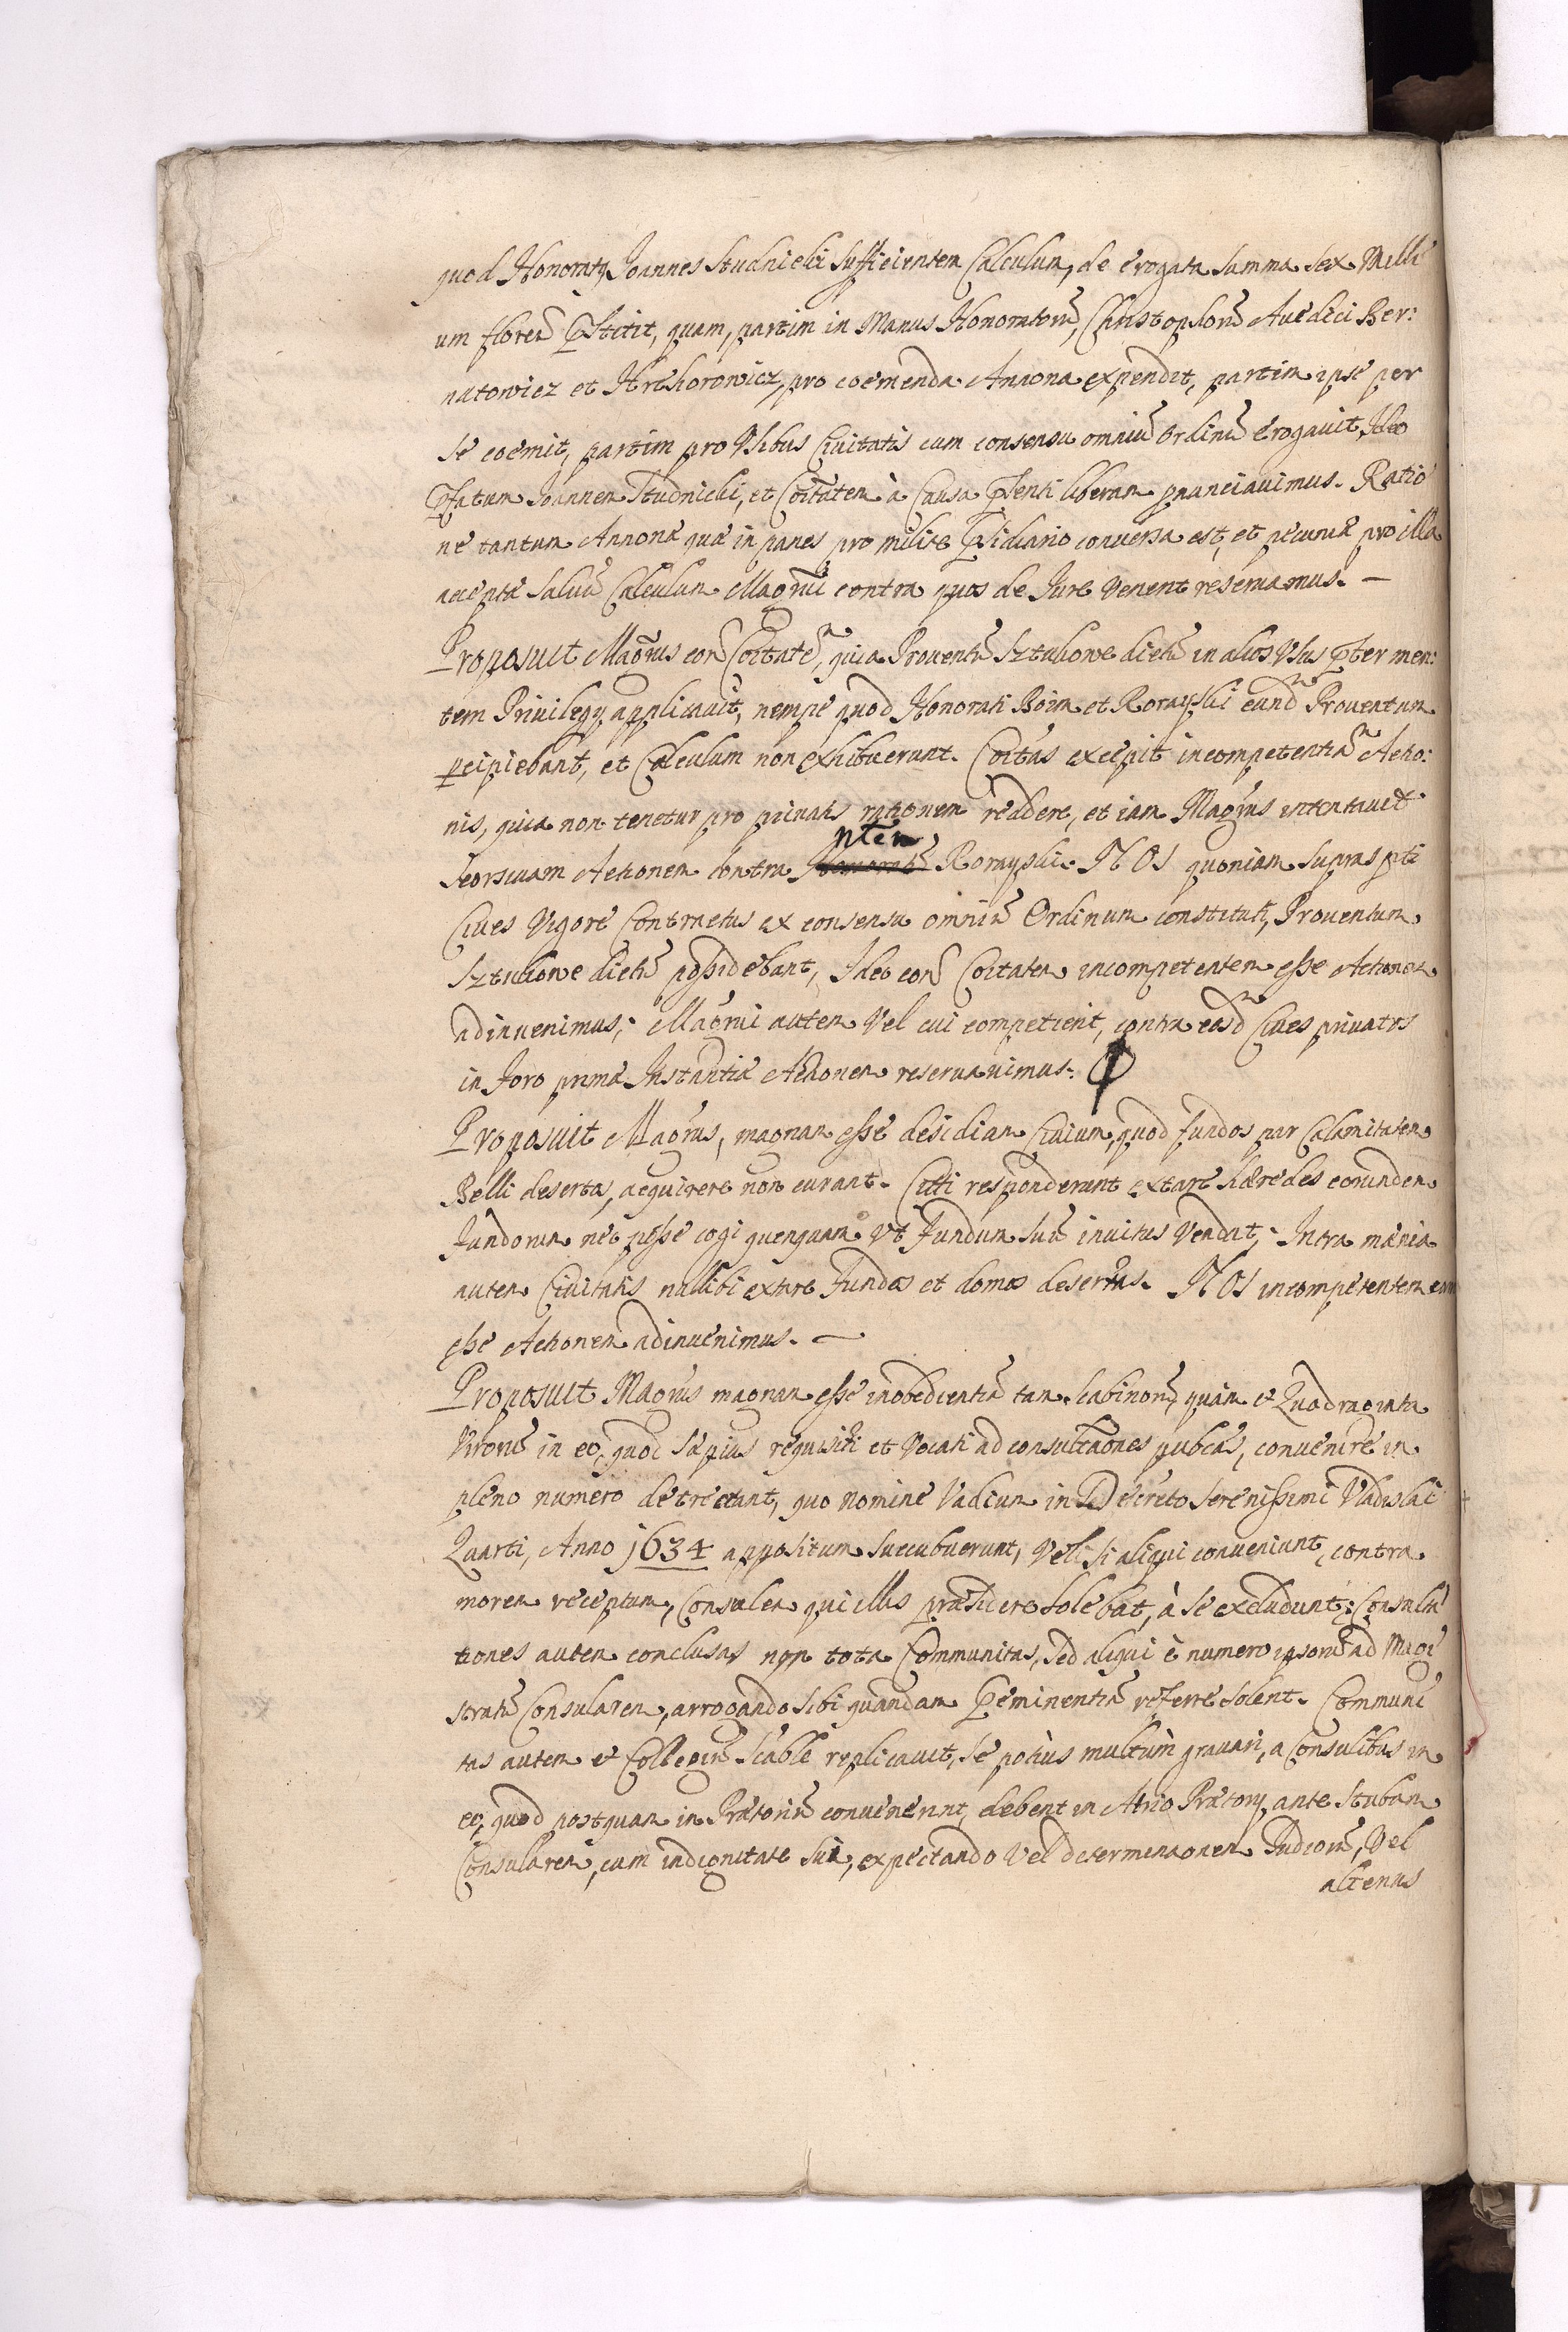 quod Honoratꝰ Joannes Studnicki Sufficientem Calculum, de erogata Summa Sex Milli
um floren̄ p̄stitit, quam, partim in Manus Honoratorū, Christophori Auedici Ber:
natowicz et Hrehorowicz, pro coemenda Annona expendit, partim ipse per
se coemit, partim pro Usibus Civitatis cum consensu omniū Ordinū erogavit, Ideo
p̄fatum Joannem Studnicki, et Coītatem à Causa p̄senti liberam pnunciavimus. Ratio
ne tantum Annonæ quæ in panes pro milite p̄sidiario conversa est, et pecuniæ pro illa
acceptæ Salvū Calculum Magrūi contra quos de Jure venent reservamus. —
Proposuit Magrūs con̄ Coītatē, quia Proventū Sztukowe dictū in alios Usus p̄ter men:
tem Privilegy applicavit, nempe quod Honorati Boim et Korayski eund̄ Proventum
pcipiebant, et Calculum non exhibuerunt. Coītas excepit incompetentiā Actio:
nis, quia non tenetur pro privatis rationem reddere, et iam Magrūs intentavit
nt̄em
Seorsivam Actionem contra Honoratū Korayski. NOS quoniam Supraspti
Cives Vigore Contractus ex consensu omniū Ordinum constituti, Proventum
Sztukowe dictū possidebant, Ideo con̄ Coītatem incompetentem esse Actionem
adinvenimus; Magrūi autem vel cui competierit, contra eosd̄ Cives privatos
in foro primæ Instantiæ Actionem reservavimus.
Proposuit Magrūs, magnam esse desidiam Civium, quod fundos par Calamitatem
Belli desertos, acquirere non curant. Citti responderunt extare hæredes eorundem
fundorum nec posse cogi quenquam ut fundum suū invitus vendat; Intra mænia
autem Civitatis nullibi extare fundos et domos desertas. NOS incompetentem eam
esse Actionem adinvenimus. —
Proposuit Magrūs magnam esse inobedientiā tam Scabinorū quàm et Quadraginta
Virorū in eo, quod sæpius requisiti et vocati ad consultaōnes pubcas, convenire in
pleno numero detrectant, quo nomine Vadium in Decreto Serenissimi Vladislai
Quarti, Anno 1634 appositum succubuerunt, Vel si aliqui conveniunt, contra
morem receptum, Consulem qui illis præsidere solebat, à se excludunt; Consulta
tiones autem conclusas non tota Communitas, sed aliqui è numero ipsorū ad Magi
stratū Consularem, arrogando sibi quandam p̄eminentiā referre solent. Communi
tas autem et Collegiū Scable replicavit, se potius multùm gravari, a Consulibus in
eo, quod postquam in Prætoriū convenerint, debent in Atrio Prætory ante Stubam
Consularem, cum indignitate sua, expectando Vel determinaonem Judiciorū, Vel
alterius